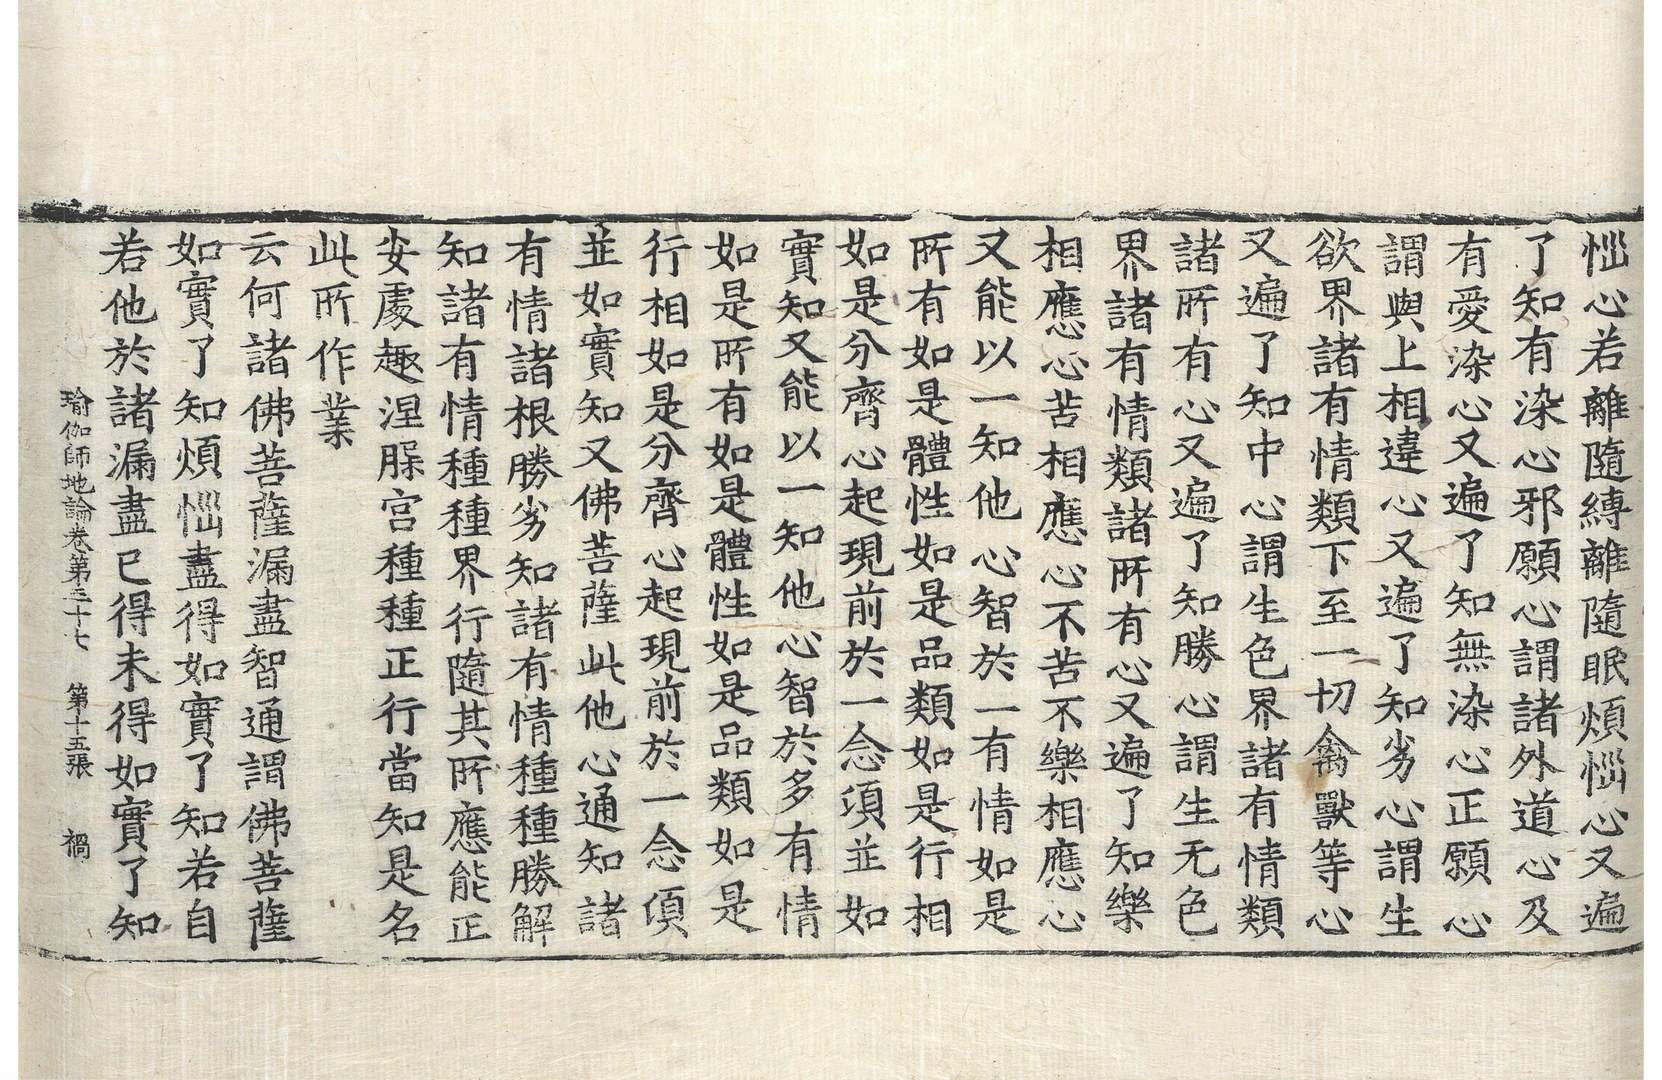 惱心若離隨縛離隨眠煩惱心又遍
了知有染心邪願心謂諸外道心及
有愛染心又遍了知無染心正願心
謂與上相違心又遍了知劣心謂生
欲界諸有情類下至一切禽獸等心
又遍了知中心謂生色界諸有情類
諸所有心又遍了知勝心謂生无色
界諸有情類諸所有心又遍了知樂
相應心苦相應心不苦不樂相應心
又能以一知他心智於一有情如是
所有如是體性如是品類如是行相
如是分齊心起現前於一念頃並如
實知又能以一知他心智於多有情
如是所有如是體性如是品類如是
行相如是分齊心起現前於一念頃
並如實知又佛菩薩此他心通知諸
有情諸根勝劣知諸有情種種勝解
知諸有情種種界行隨其所應能正
安處趣涅槃宮種種正行當知是名
此所作業
云何諸佛菩薩漏盡智通謂佛菩薩
如實了知煩惱盡得如實了知若自
若他於諸漏盡已得未得如實了知
瑜伽師地論卷第三十七 第十五張 禍